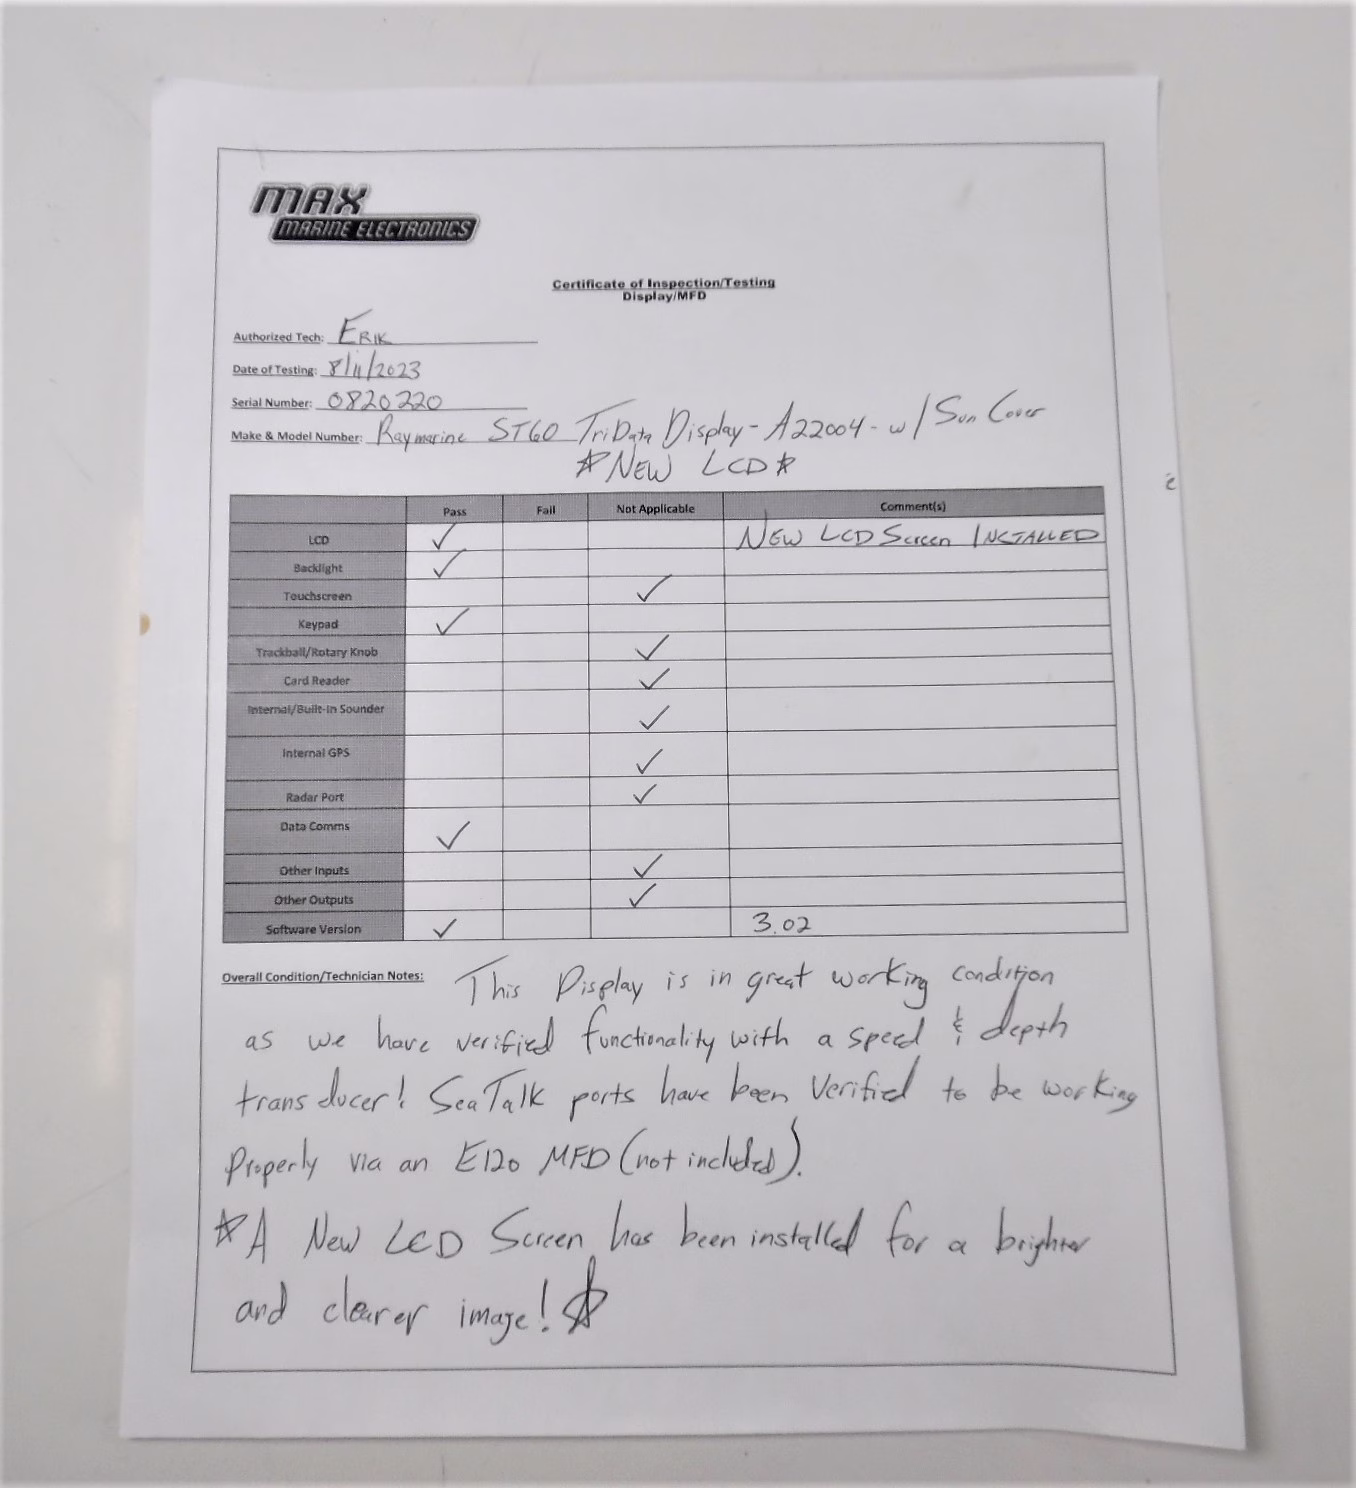 MAX
MARINE ELECTRONICS
Certificate of Inspection/Testing
Display/MFD
Authorized Tech: ERIK
Date of Testing: 8/11/2023
Serial Number: 0820220
Make & Model Number: Raymarine ST60 TriData Display - A22004 - w/ Sun Cover
☆NEW LCD☆
Pass Fail Not Applicable Comment(s)
LCD ✓ NEW LCD Screen INSTALLED
Backlight ✓
Touchscreen ✓
Keypad ✓
Trackball/Rotary Knob ✓
Card Reader ✓
Internal/Built-in Sounder ✓
Internal GPS ✓
Radar Port ✓
Data Comms ✓
Other Inputs ✓
Other Outputs ✓
Software Version ✓ 3.02
Overall Condition/Technician Notes: This Display is in great working condition
as we have verified functionality with a speed & depth
transducer! SeaTalk ports have been Verified to be working
Properly via an E120 MFD (not included).
☆A New LCD Screen has been installed for a brighter
and clearer image!☆